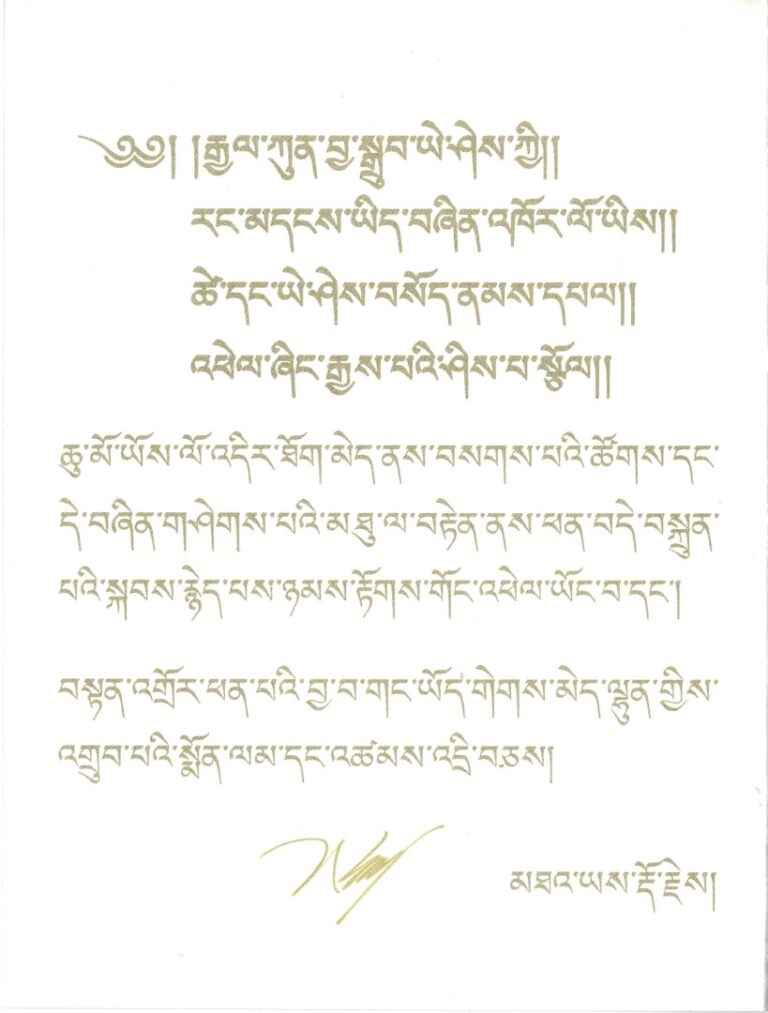 ༄༅། །རྒྱལ་ཀུན་བྱ་སྒྲུབ་ཡེ་ཤེས་ཀྱི།།
རང་མདངས་ཡིད་བཞིན་འཁོར་ལོ་ཡིས།།
ཚེ་དང་ཡེ་ཤེས་བསོད་ནམས་དཔལ།།
འཕེལ་ཞིང་རྒྱས་པའི་ཤིས་པ་སྩོལ།།
ཆུ་མོ་ཡོས་ལོ་འདིར་ཐོག་མེད་ནས་བསགས་པའི་ཚོགས་དང་
དེ་བཞིན་གཤེགས་པའི་མཐུ་ལ་བརྟེན་ནས་ཕན་བདེ་བསྐྲུན་
པའི་སྐབས་རྙེད་པས་ཉམས་རྟོགས་གོང་འཕེལ་ཡོང་བ་དང་།
བསྟན་འགྲོར་ཕན་པའི་བྱ་བ་གང་ཡོད་གེགས་མེད་ལྷུན་གྱིས་
འགྲུབ་པའི་སྨོན་ལམ་དང་འཚམས་འདྲི་བཅས།
མཐའ་ཡས་རྡོ་རྗེས།